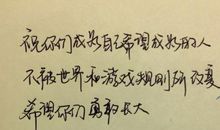 祝你们成为自己希望成为的人
不被世界和游戏规则所改变
希望你们勇敢长大